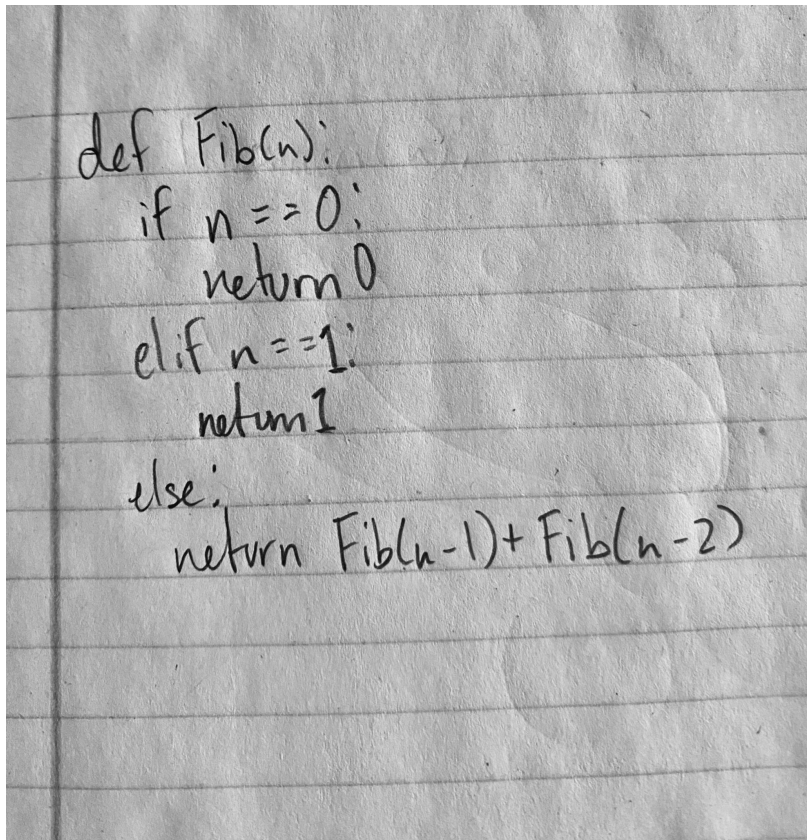 def Fib(n):
if n == 0:
return 0
elif n == 1:
return 1
else:
return Fib(n-1) + Fib(n-2)